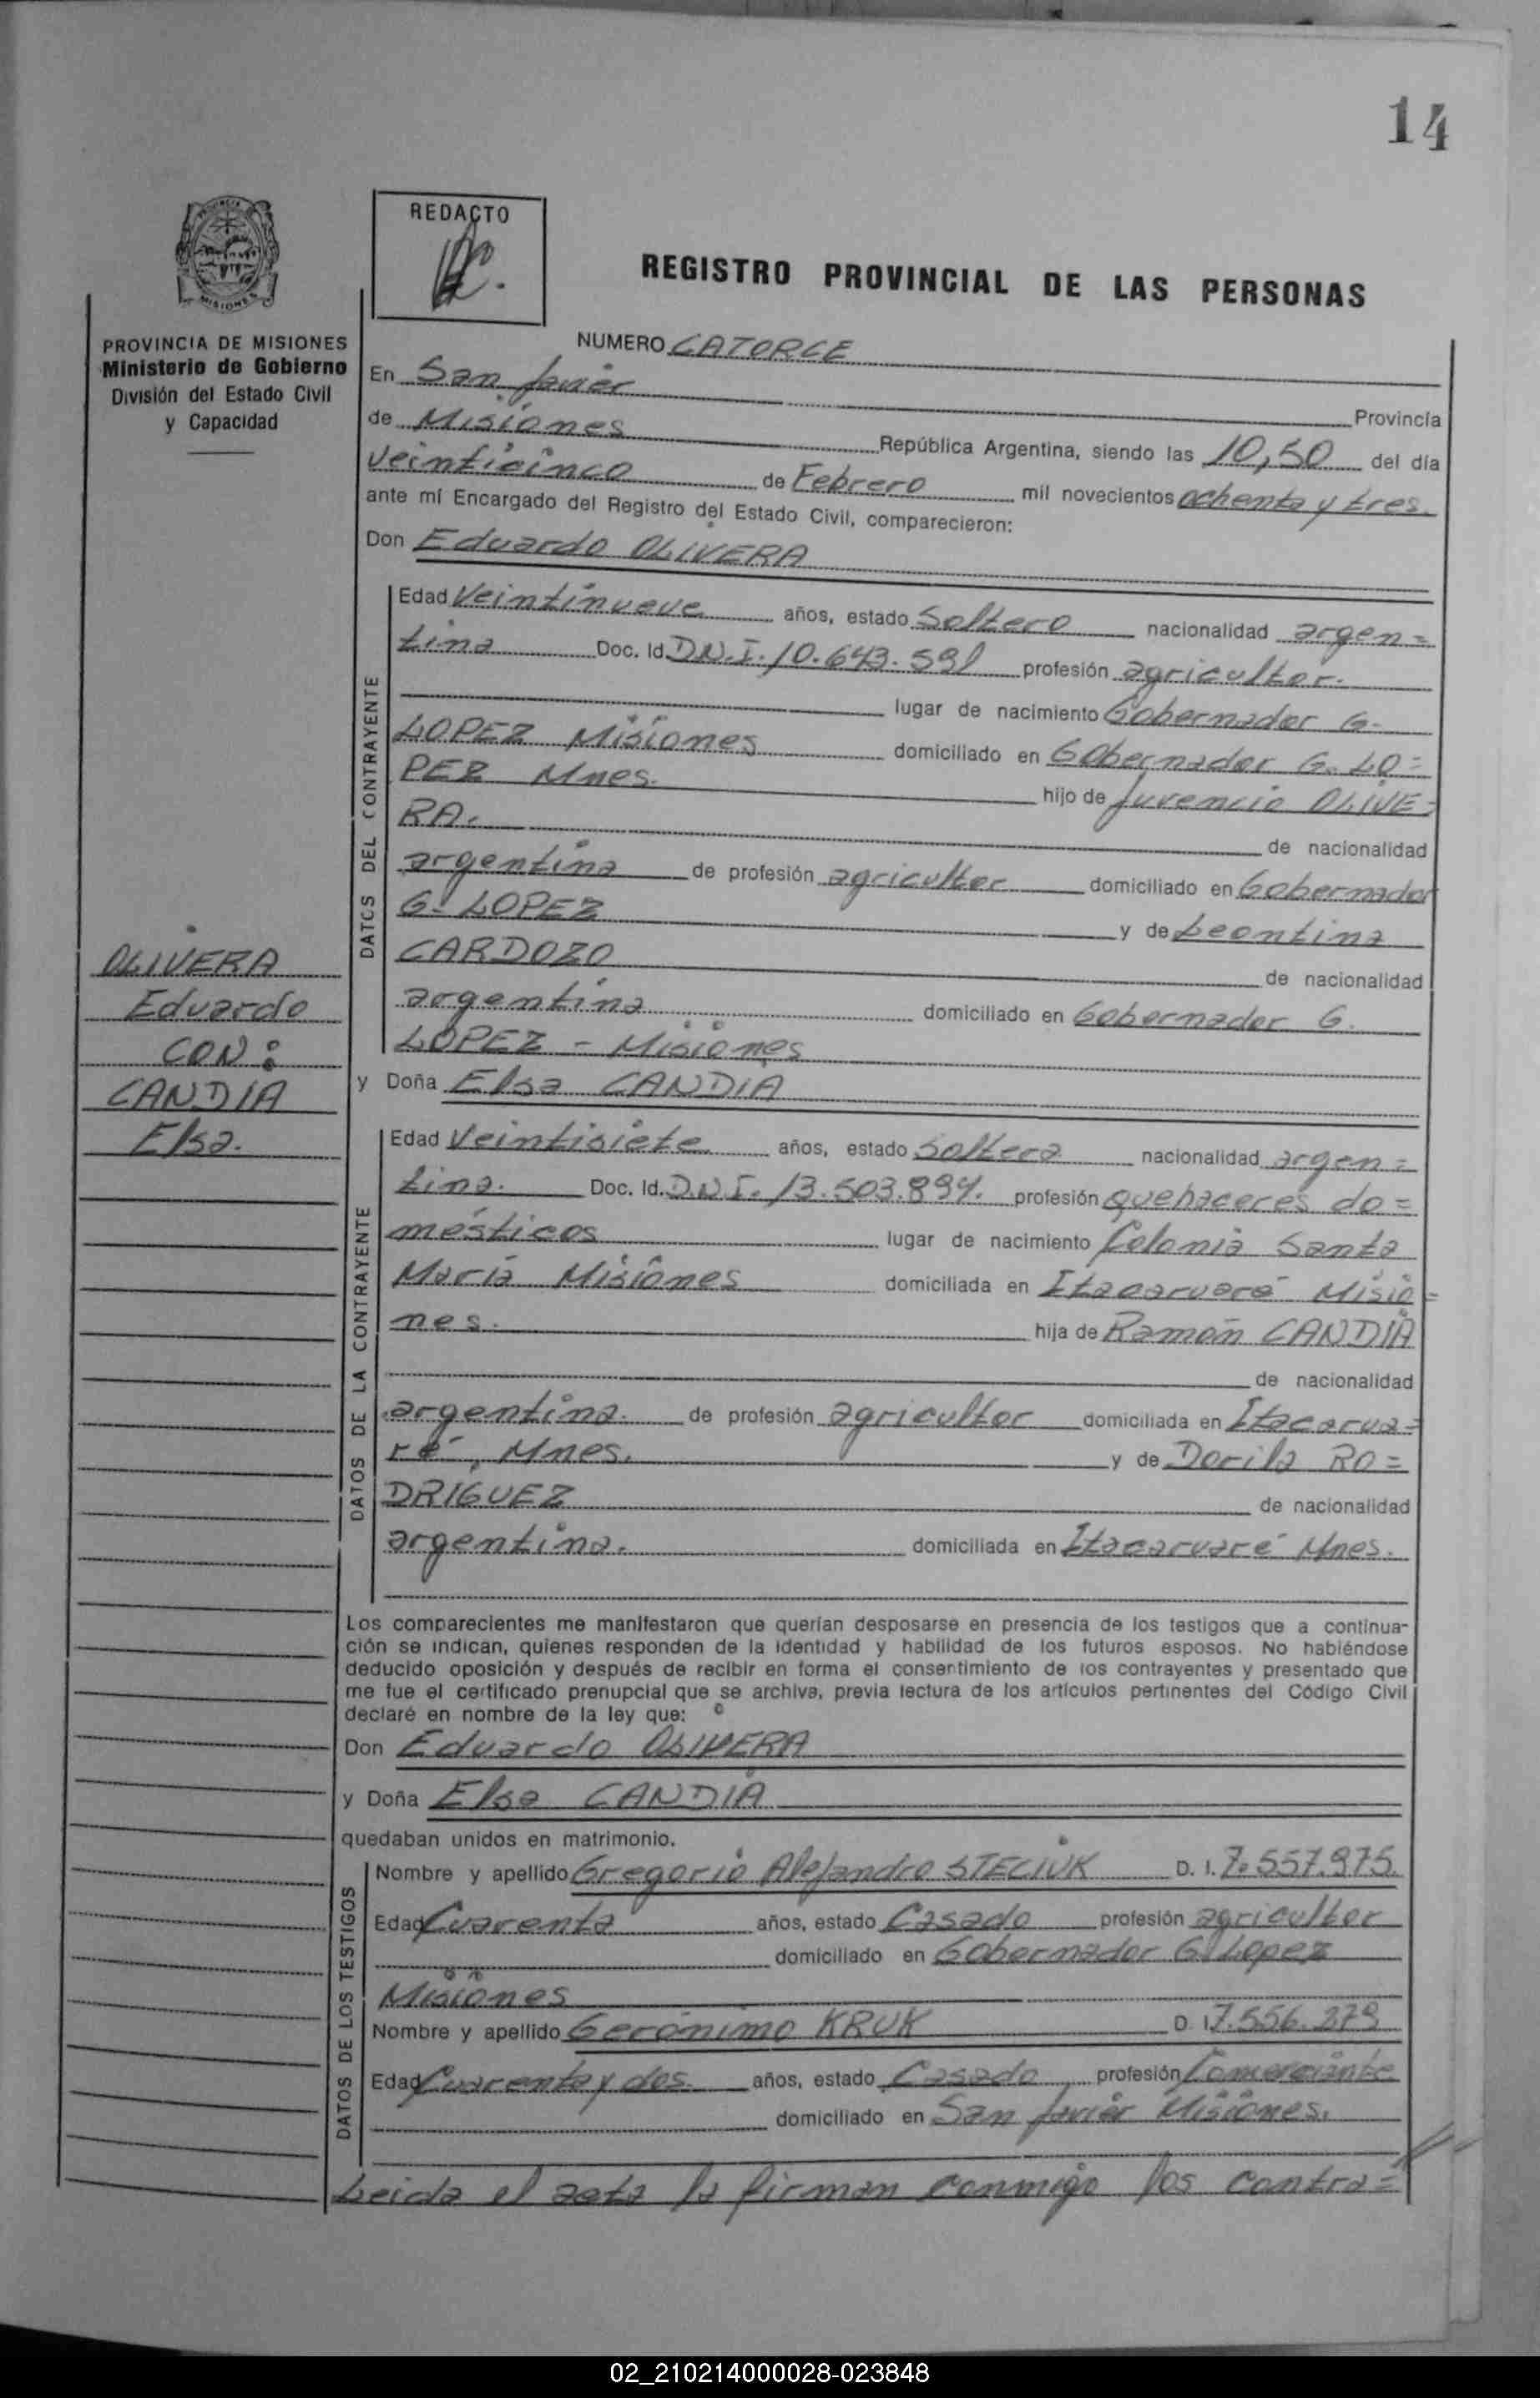 14
REDACTO
REGISTRO PROVINCIAL DE LAS PERSONAS
PROVINCIA DE MISIONES
Ministerio de Gobierno
División del Estado Civil
y Capacidad
NUMERO CATORCE
En San Javier Provincia
de Misiones República Argentina, siendo las 10,50 del día
veinticinco de Febrero mil novecientos ochenta y tres.
ante mí Encargado del Registro del Estado Civil, comparecieron:
Don Eduardo OLIVERA
DATOS DEL CONTRAYENTE
Edad Veintinueve años, estado Soltero nacionalidad argen=
tina Doc. Id. D.N.I. 10.643.591 profesión agricultor.
lugar de nacimiento Gobernador G.
LOPEZ Misiones domiciliado en Gobernador G. LO=
PEZ Mnes. hijo de Juvencio OLIVE=
RA. de nacionalidad
argentina de profesión agricultor domiciliado en Gobernador
G. LOPEZ y de Leontina
CARDOZO de nacionalidad
argentina domiciliado en Gobernador G.
LOPEZ - Misiones
OLIVERA
Eduardo
CON:
CANDIA
Elsa.
y Doña Elsa CANDIA
DATOS DE LA CONTRAYENTE
Edad Veintisiete años, estado Soltera nacionalidad argen=
tina. Doc. Id. D.N.I. 13.503.894. profesión quehaceres do=
mésticos lugar de nacimiento Colonia Santa
María Misiones domiciliada en Itacaruaré Misio=
nes. hija de Ramón CANDIA
de nacionalidad
argentina. de profesión agricultor domiciliada en Itacarua=
ré, Mnes. y de Dorila RO=
DRIGUEZ de nacionalidad
argentina. domiciliada en Itacaruaré Mnes.
Los comparecientes me manifestaron que querían desposarse en presencia de los testigos que a continua-
ción se indican, quienes responden de la identidad y habilidad de los futuros esposos. No habiéndose
deducido oposición y después de recibir en forma el consentimiento de los contrayentes y presentado que
me fue el certificado prenupcial que se archiva, previa lectura de los artículos pertinentes del Código Civil
declaré en nombre de la ley que:
Don Eduardo OLIVERA
y Doña Elsa CANDIA
quedaban unidos en matrimonio.
DATOS DE LOS TESTIGOS
Nombre y apellido Gregorio Alejandro STECIUK D. I. 7.557.975.
Edad Cuarenta años, estado Casado profesión agricultor
domiciliado en Gobernador G. Lopez
Misiones
Nombre y apellido Gerónimo KRUK D. I 7.556.279
Edad Cuarenta y dos. años, estado Casado profesión Comerciante
domiciliado en San Javier Misiones.
Leida el acta la firman conmigo los contra=
02_210214000028-023848